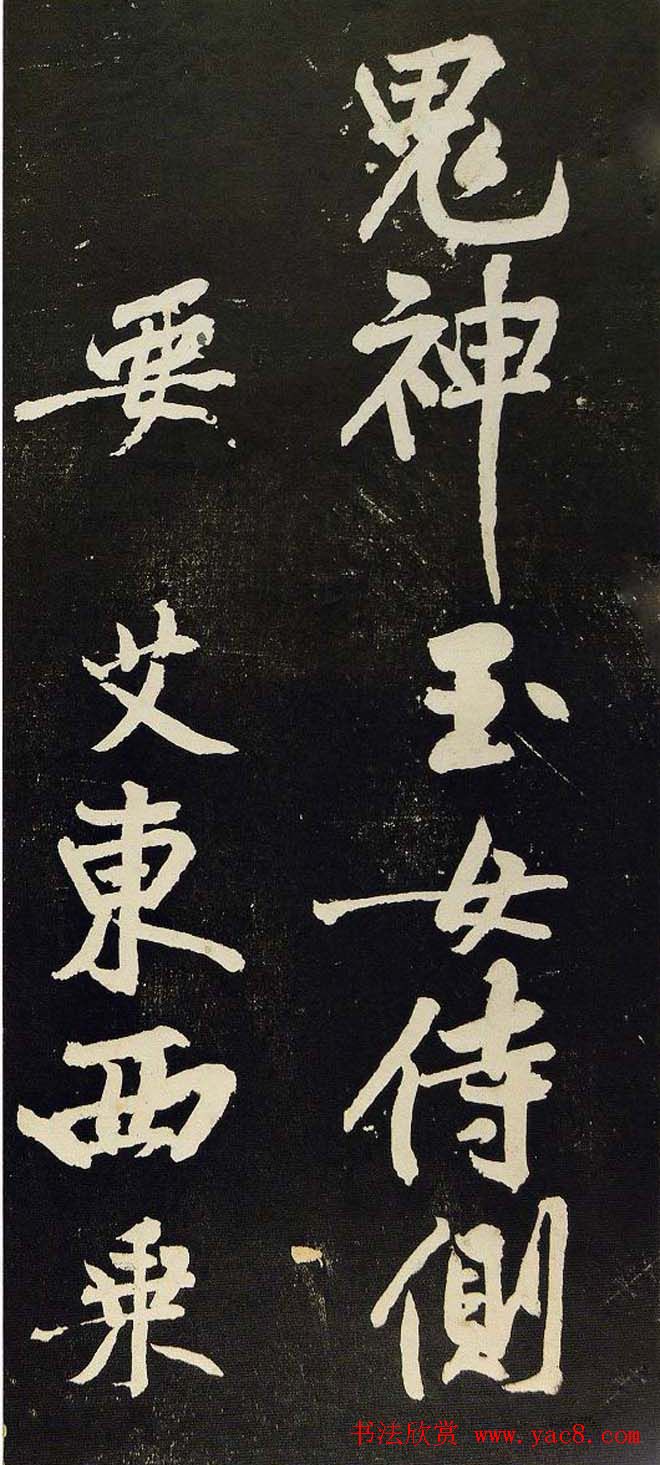 鬼神玉女侍側
要艾東西乘
书法欣赏 www.yac8.com